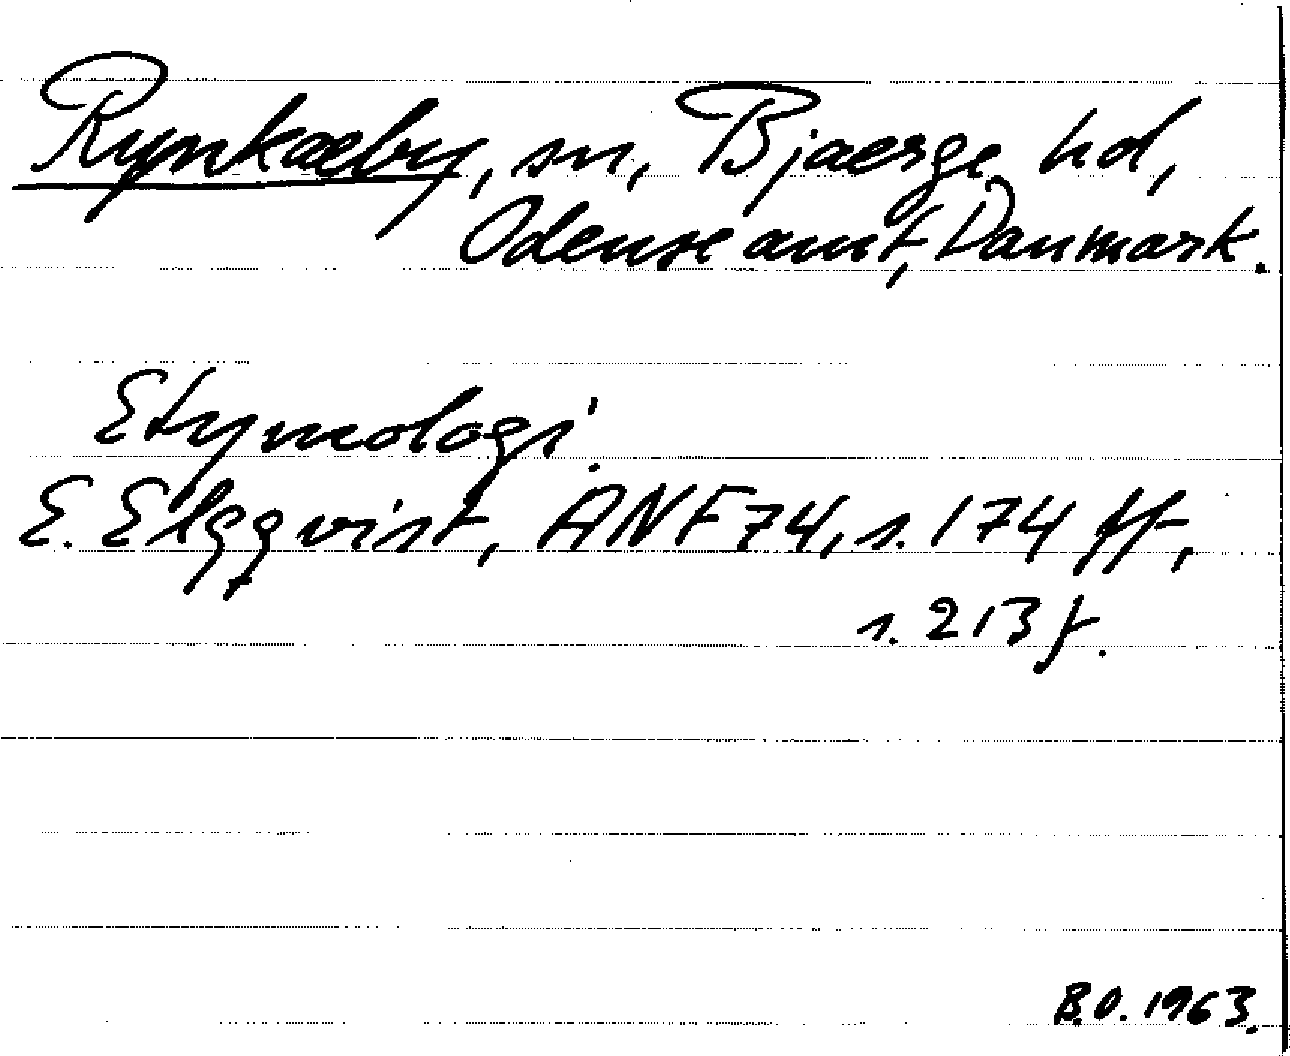 Rynkæby, sn, Bjaerge hd,
Odense amt, Danmark.
Etymologi.
E. Elgqvist, ANF 74, s. 174 ff,
s. 213 f.
B.O. 1963.